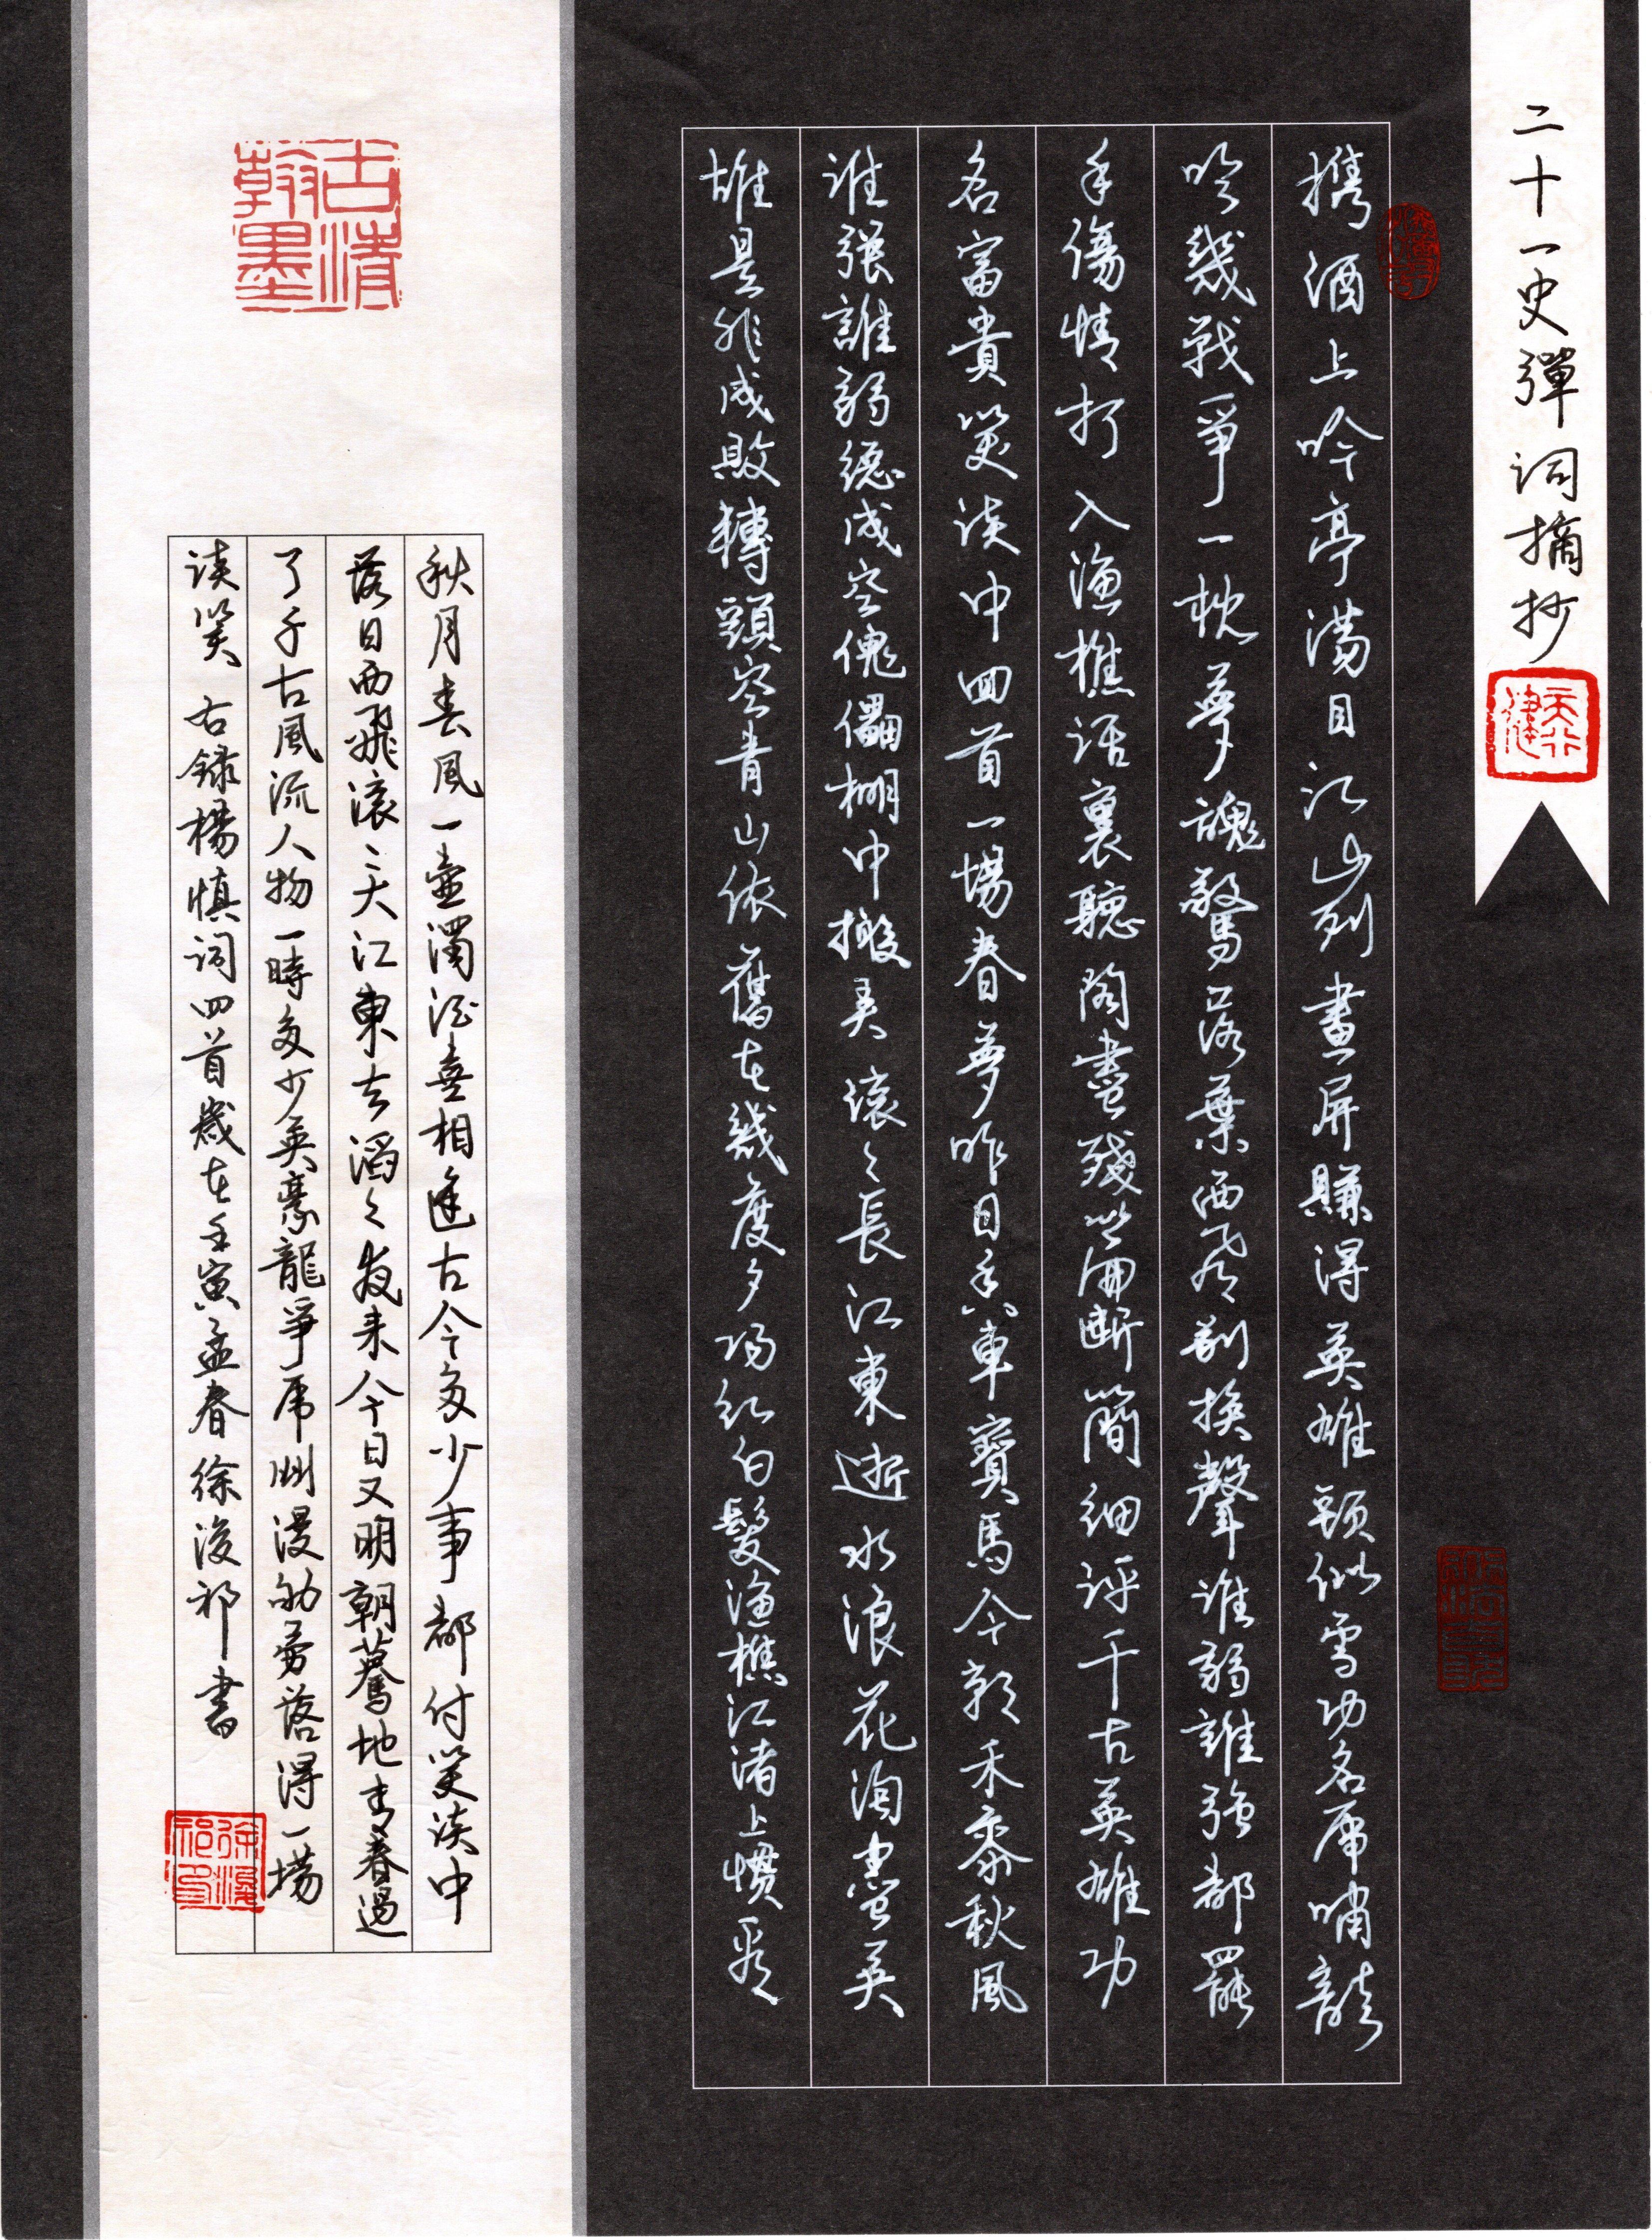 二十一史彈詞摘抄
天行健
携酒上吟亭滿目江山列畫屏賺得英雄頭似雪功名虎嘯龍
吟幾戰爭一枕夢魂驚落葉西風別換聲谁弱誰強都罷
手傷情打入漁樵話裏聽閱盡殘篇斷簡細評千古英雄功
名富貴笑談中回首一場春夢昨日香車寶馬今朝禾黍秋風
谁强誰弱總成空傀儡棚中搬弄滾々長江東逝水浪花淘盡英
雄是非成敗轉頭空青山依舊在幾度夕陽紅白髮漁樵江渚上慣看
古清翰墨
秋月春風一壺濁酒喜相逢古今多少事都付笑談中
落日西飛滾々大江東去滔々夜来今日又明朝驀地青春過
了千古風流人物一時多少英豪龍爭虎鬥漫劬勞落得一場
談笑 右録楊慎詞四首歲在壬寅孟春徐浚祁書
徐浚祁印